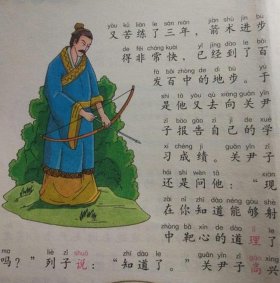 yòu kǔ liàn le sān nián jiàn shù jìn bù
又苦练了三年，箭术进步
dé fēi cháng kuài yǐ jīng dào le bǎi
得非常快，已经到了百
fā bǎi zhòng de dì bù yú
发百中的地步。于
shì tā yòu qù xiàng guān yǐn
是他又去向关尹
zǐ bào gào zì jǐ de xué
子报告自己的学
xí chéng jì guān yǐn zǐ
习成绩。关尹子
hái shì wèn tā xiàn
还是问他：“现
zài nǐ zhī dào néng gòu shè
在你知道能够射
zhòng bǎ xīn de dào lǐ le
中靶心的道理了
ma liè zǐ shuō zhī dào le guān yǐn zǐ gāo xìng
吗？”列子说：“知道了。”关尹子高兴